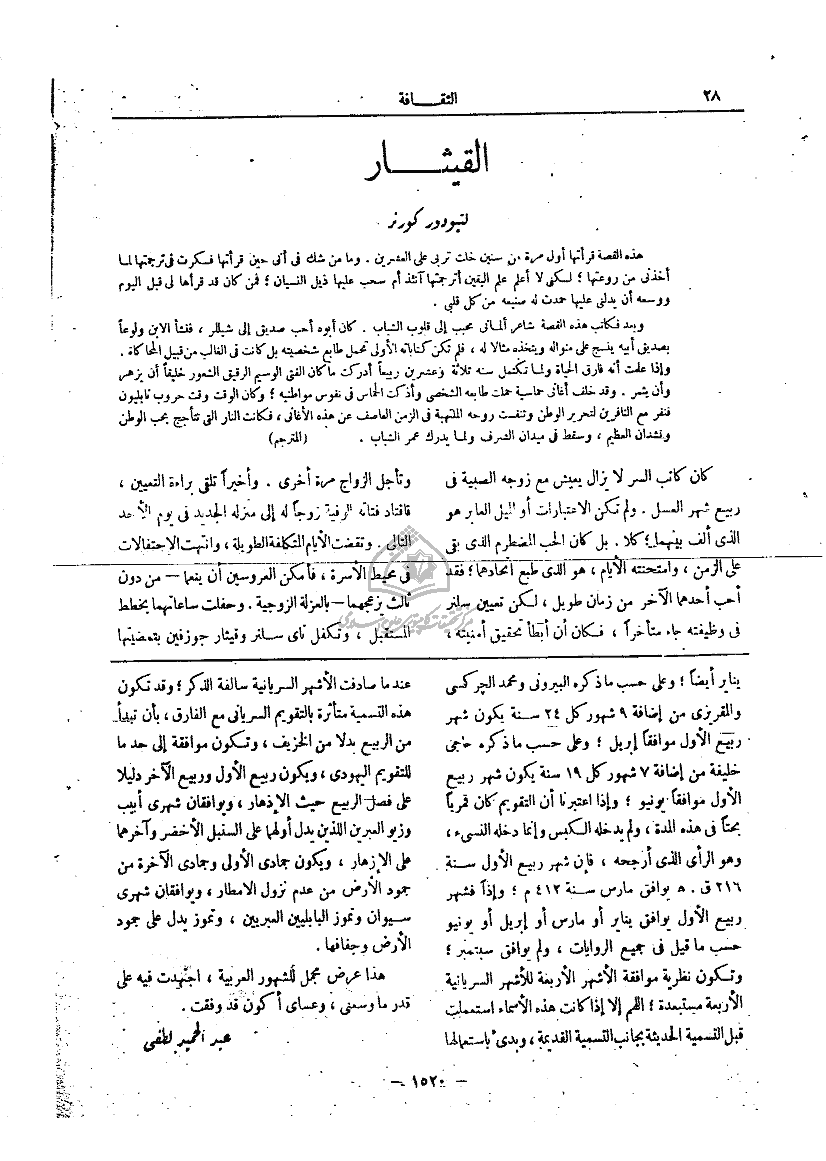 ٢٨
الثقـــافة
القيثـــــار
لتيودور كورنر
هذه القصة قرأتها أول مرة من سنين خلت تربى على العشرين . وما من شك فى أنى حين قرأتها فكرت فى ترجمتها لما
أخذنى من روعتها ؛ لكنى لا أعلم علم اليقين أترجمتها آنئذ أم سحب عليها ذيل النسيان ؛ فمن كان قد قرأها لى قبل اليوم
ووسعه أن يدلنى عليها حمدت له صنيعه من كل قلبى .
وبعد فكاتب هذه القصة شاعر ألمانى محبب إلى قلوب الشباب . كان أبوه أحب صديق إلى شيللر ، فنشأ الابن ولوعاً
بصديق أبيه ينسج على منواله ويتخذه مثالا له ، فلم تكن كتاباته الأولى تحمل طابع شخصيته بل كانت فى الغالب من قبيل المحاكاة .
وإذا علمت أنه فارق الحياة ولما تكتمل سنه ثلاثة وعشرين ربيعاً أدركت ما كان الفتى الوسيم الرقيق الشعور خليقاً أن يزهر
وأن يثمر . وقد خلف أغانى حماسية حملت طابعه الشخصى وأذكت الحماس فى نفوس مواطنيه ؛ وكان الوقت وقت حروب نابليون
فنفر مع الثائرين لتحرير الوطن وتنفست روحه الملتهبة فى الزمن العاصف عن هذه الأغانى ، فكانت النار التى تتأجج بحب الوطن
ونشدان العظيم ، وسقط فى ميدان الشرف ولما يدرك عمر الشباب . (المترجم)
كان كاتب السر لا يزال يعيش مع زوجه الصبية فى
ربيع شهر العسل . ولم تكن الاعتبارات أو الميل العابر هو
الذى ألف بينهما ؛ كلا . بل كان الحب المضطرم الذى بقى
على الزمن ، وامتحنته الأيام ، هو الذى طبع اتحادهما ؛ فقد
أحب أحدهما الآخر من زمان طويل ، لكن تعيين سلنر
فى وظيفته جاء متأخراً ، فكان أن أبطأ تحقيق أمنيته ،
وتأجل الزواج مرة أخرى . وأخيراً تلقى براءة التعيين ،
فاقتاد فتاته الوفية زوجاً له إلى منزله الجديد فى يوم الأحد
التالى . وتقضت الأيام المتكلفة الطويلة ، وانتهت الاحتفالات
فى محيط الأسرة ، فأمكن العروسين أن ينعما — من دون
ثالث يزعجهما — بالعزلة الزوجية . وحفلت ساعاتهما بخطط
المستقبل ، وتكفل ناى سلنر وقيثار جوزفين بتمضيتها
يناير أيضاً ؛ وعلى حسب ما ذكره البيرونى ومحمد الچركسى
والمقريزى من إضافة ٩ شهور كل ٢٤ سنة يكون شهر
ربيع الأول موافقاً إبريل ؛ وعلى حسب ما ذكره حاجى
خليفة من إضافة ٧ شهور كل ١٩ سنة يكون شهر ربيع
الأول موافقاً يونيو ؛ وإذا اعتبرنا أن التقويم كان قمرياً
بحتاً فى هذه المدة ، ولم يدخله الكبس وإنما دخله النسىء ،
وهو الرأى الذى أرجحه ، فإن شهر ربيع الأول سنة
٢١٦ ق . ه يوافق مارس سنة ٤١٢ م ؛ وإذاً فشهر
ربيع الأول يوافق يناير أو مارس أو إبريل أو يونيو
حسب ما قيل فى جميع الروايات ، ولم يوافق سبتمبر ؛
وتكون نظرية موافقة الأشهر الأربعة للأشهر السريانية
الأربعة مستبعدة ؛ اللهم إلا إذا كانت هذه الأسماء استعملت
قبل التسمية الحديثة بجانب التسمية القديمة ، وبدئ باستعمالها
عند ما صادفت الأشهر السريانية سالفة الذكر ؛ وقد تكون
هذه التسمية متأثرة بالتقويم السريانى مع الفارق ، بأن تبدأ
من الربيع بدلا من الخريف ، وتكون موافقة إلى حد ما
للتقويم اليهودى ، ويكون ربيع الأول وربيع الآخر دليلا
على فصل الربيع حيث الإذهار ، ويوافقان شهرى أبيب
وزيو العبرين اللذين يدل أولهما على السنبل الأخضر وآخرهما
على الإزهار ، ويكون جمادى الأولى وجمادى الآخرة من
جمود الأرض من عدم نزول الامطار ، ويوافقان شهرى
سيوان وتموز البابليين العبريين ، وتموز يدل على جمود
الأرض وجفافها .
هذا عرض مجمل للشهور العربية ، اجتهدت فيه على
قدر ما وسعنى ، وعساى أكون قد وفقت .
عبد الحميد لطفى
— ١٥٢٠ —